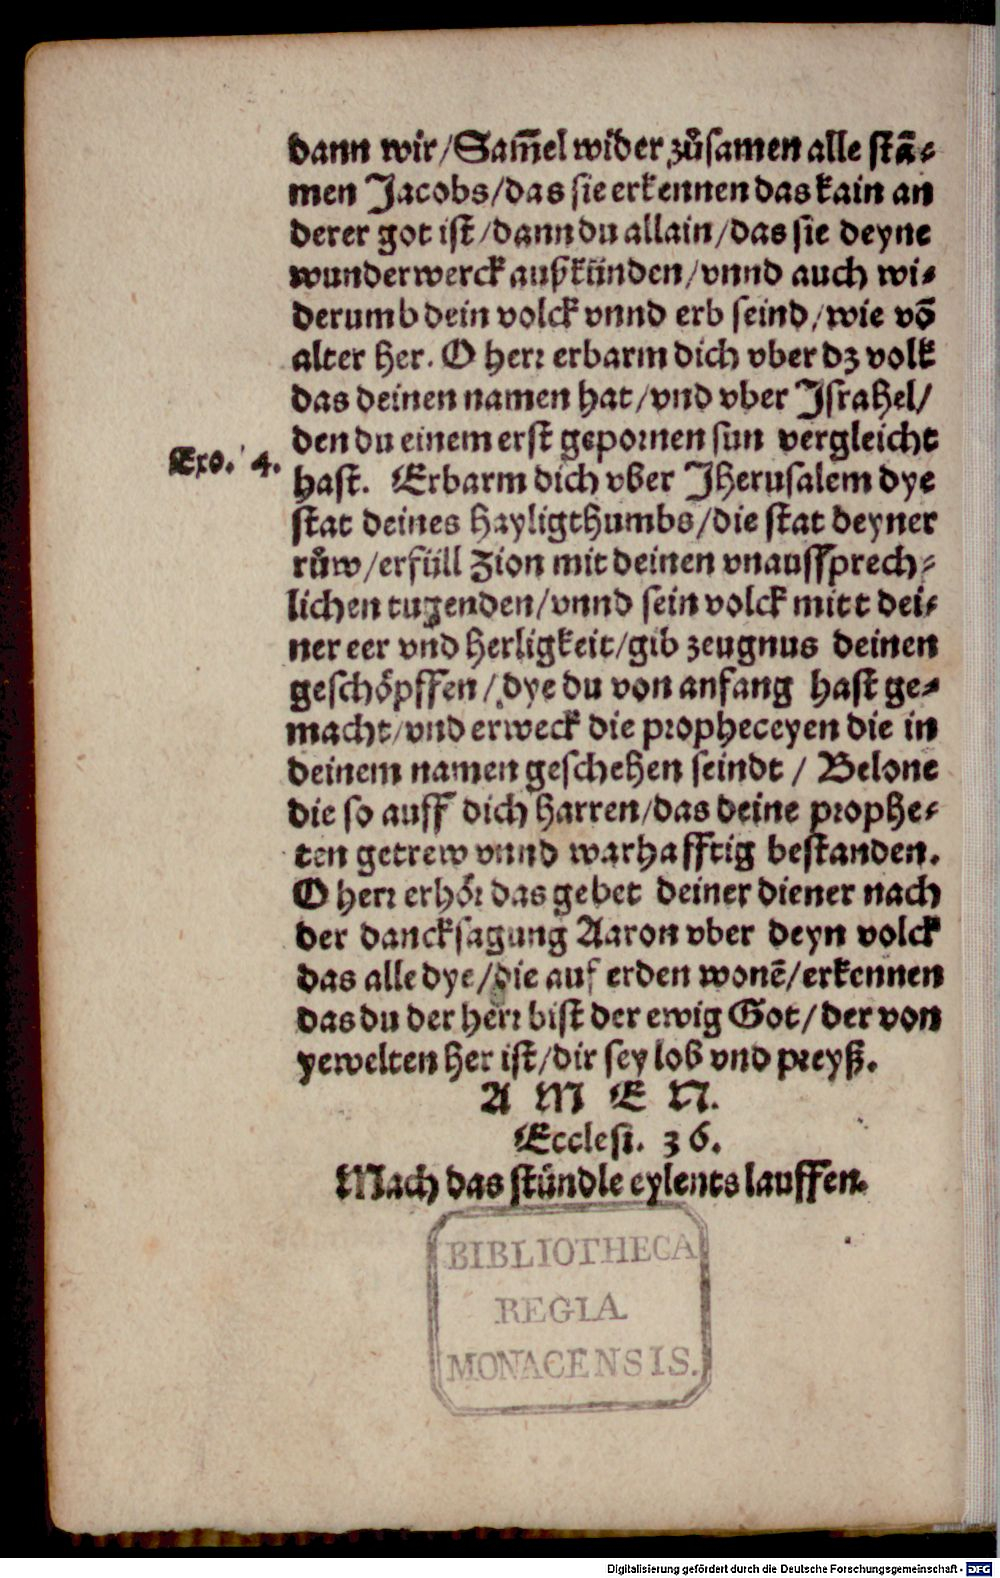 dann wir/Sam̄el wider zůsamen alle stā⸗
men Jacobs/das sie erkennen das kain an
derer got ist/dann du allain/das sie deyne
wunderwerck außkünden/vnnd auch wi⸗
derumb dein volck vnnd erb seind/wie vō
alter her. O herr erbarm dich vber dz volk
das deinen namen hat/vnd vber Jsrahel/
den du einem erst gepornen sun vergleicht
Exo. 4.
hast. Erbarm dich vber Jherusalem dye
stat deines hayligthumbs/die stat deyner
růw/erfüll Zion mit deinen vnaussprech⸗
lichen tugenden/vnnd sein volck mitt dei⸗
ner eer vnd herligkeit/gib zeugnus deinen
geschöpffen/dye du von anfang hast ge⸗
macht/vnd erweck die propheceyen die in
deinem namen geschehen seindt / Belone
die so auff dich harren/das deine prophe⸗
ten getrew vnnd warhafftig bestanden.
O herr erhör das gebet deiner diener nach
der dancksagung Aaron vber deyn volck
das alle dye/die auf erden wonē/erkennen
das du der herr bist der ewig Got/der von
yewelten her ist/dir sey lob vnd preyß.
A M E N.
Ecclesi. 36.
Mach das stündle eylents lauffen.
BIBLIOTHECA
REGIA
MONACENSIS.
Digitalisierung gefördert durch die Deutsche Forschungsgemeinschaft - DFG